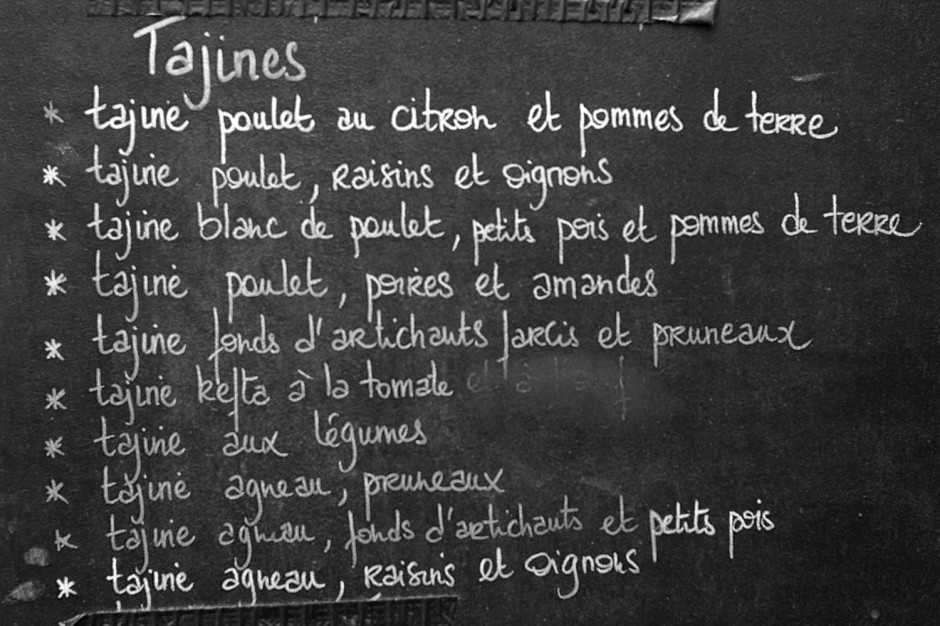 Tajines
* tajine poulet au citron et pommes de terre
* tajine poulet, raisins et oignons
* tajine blanc de poulet, petits pois et pommes de terre
* tajine poulet, poires et amandes
* tajine fonds d'artichauts farcis et pruneaux
* tajine kefta à la tomate
* tajine aux légumes
* tajine agneau, pruneaux
* tajine agneau, fonds d'artichauts et petits pois
* tajine agneau, raisins et oignons